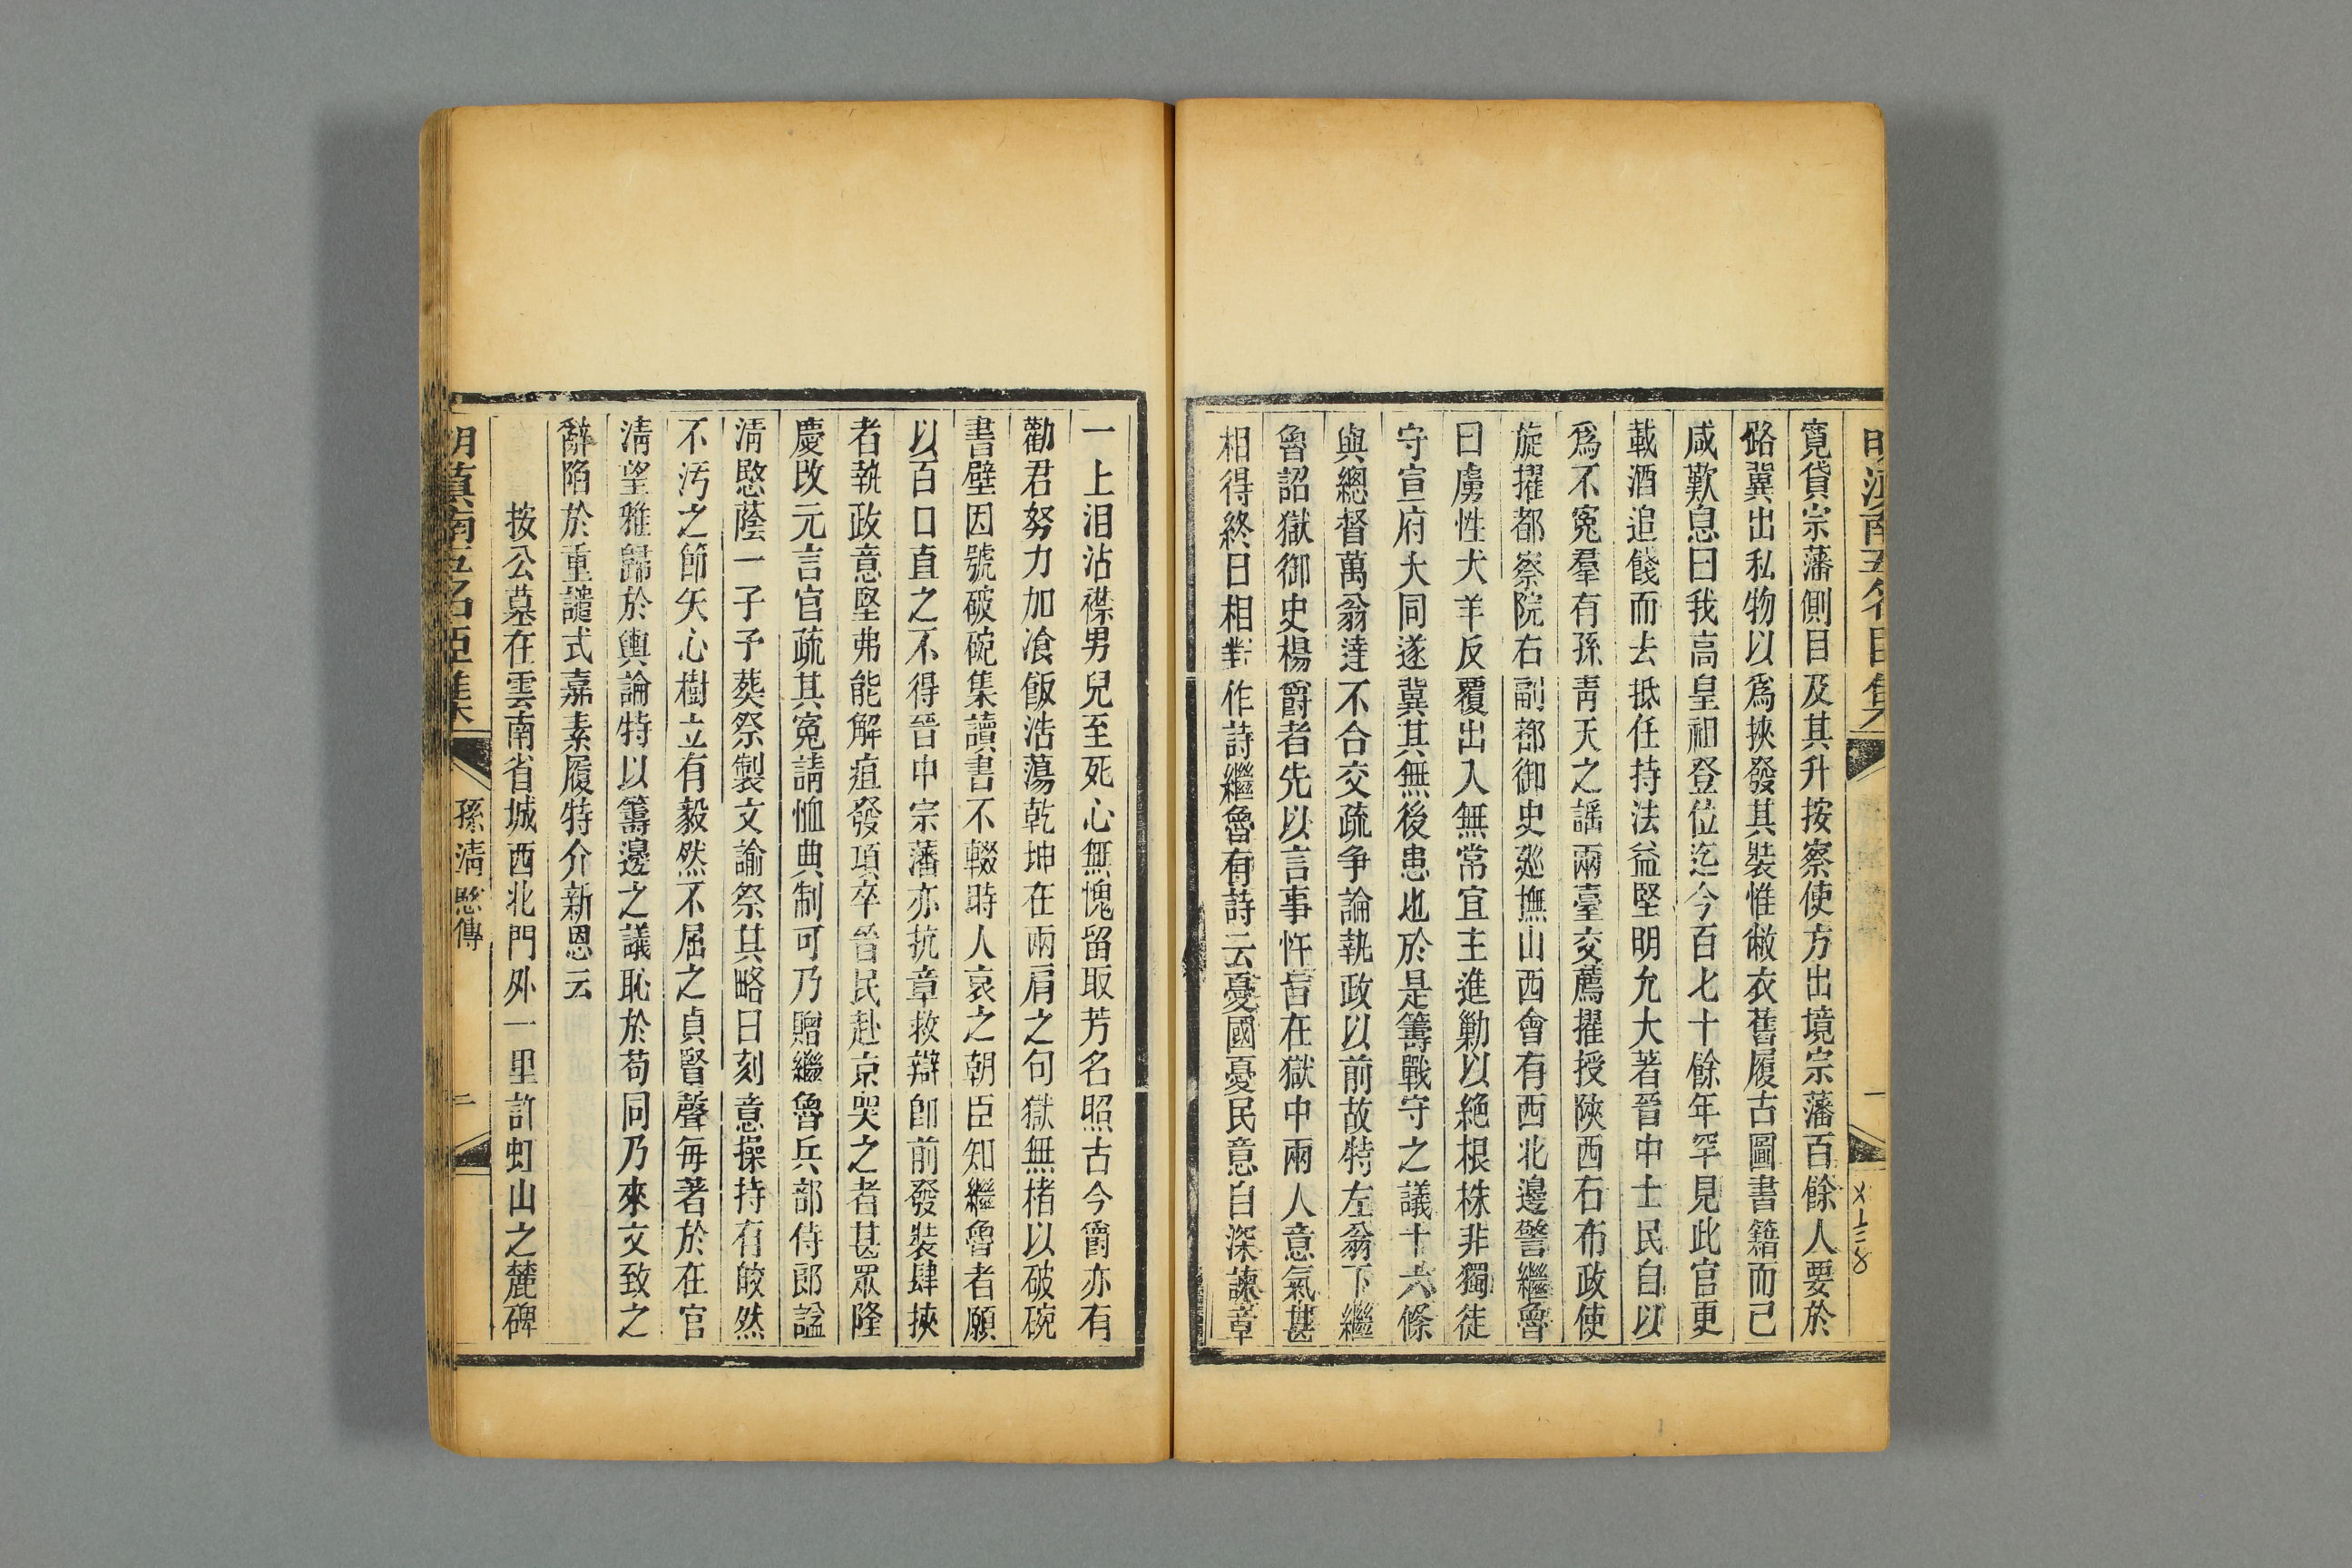 明滇南五名臣集
一
寬貸宗藩側目及其升按察使方出境宗藩百餘人要於
路冀出私物以爲挾發其裝惟敝衣舊履古圖書籍而已
咸歎息曰我高皇祖登位迄今百七十餘年罕見此官更
載酒追餞而去抵任持法益堅明允大著晉中士民自以
爲不寃羣有孫靑天之謡兩臺交薦擢授陝西右布政使
旋擢都察院右副都御史廵撫山西會有西北邊警繼魯
曰虜性犬羊反覆出入無常宜主進勦以絶根株非獨徒
守宣府大同遂冀其無後患也於是籌戰守之議十六條
與總督萬翁達不合交疏争論執政以前故特左翁下繼
魯詔獄御史楊爵者先以言事忤旨在獄中兩人意氣甚
相得終日相對作詩繼魯有詩云憂國憂民意自深諫章
一上泪沾襟男兒至死心無愧留取芳名照古今爵亦有
勸君努力加飡飯浩蕩乾坤在兩肩之句獄無楮以破碗
書壁因號破碗集讀書不輟時人哀之朝臣知繼魯者願
以百口直之不得晉中宗藩亦抗章救辯卽前發裝肆挾
者執政意堅弗能解疽發項卒晉民赴京哭之者甚眾隆
慶改元言官疏其寃請恤典制可乃贈繼魯兵部侍郎諡
淸愍蔭一子予葬祭製文諭祭其略曰刻意操持有皎然
不汚之節矢心樹立有毅然不屈之貞賢聲毎著於在官
淸望雅歸於輿論特以籌邊之議恥於苟同乃來文致之
辭陷於重譴式嘉素履特介新恩云
按公墓在雲南省城西北門外一里許虹山之麓碑
明滇南五名臣集
孫淸愍傳
二